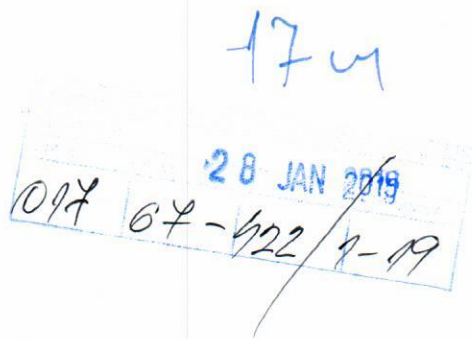 28 JAN 2019
017 67-422/1-19